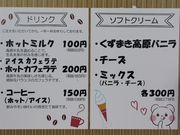 ドリンク
・ホットミルク 100円
・アイスカフェラテ
・ホットカフェラテ 200円
・コーヒー 150円
(ホット/アイス)
ソフトクリーム
・くずまき高原バニラ
・チーズ
・ミックス
(バニラ・チーズ)
各300円